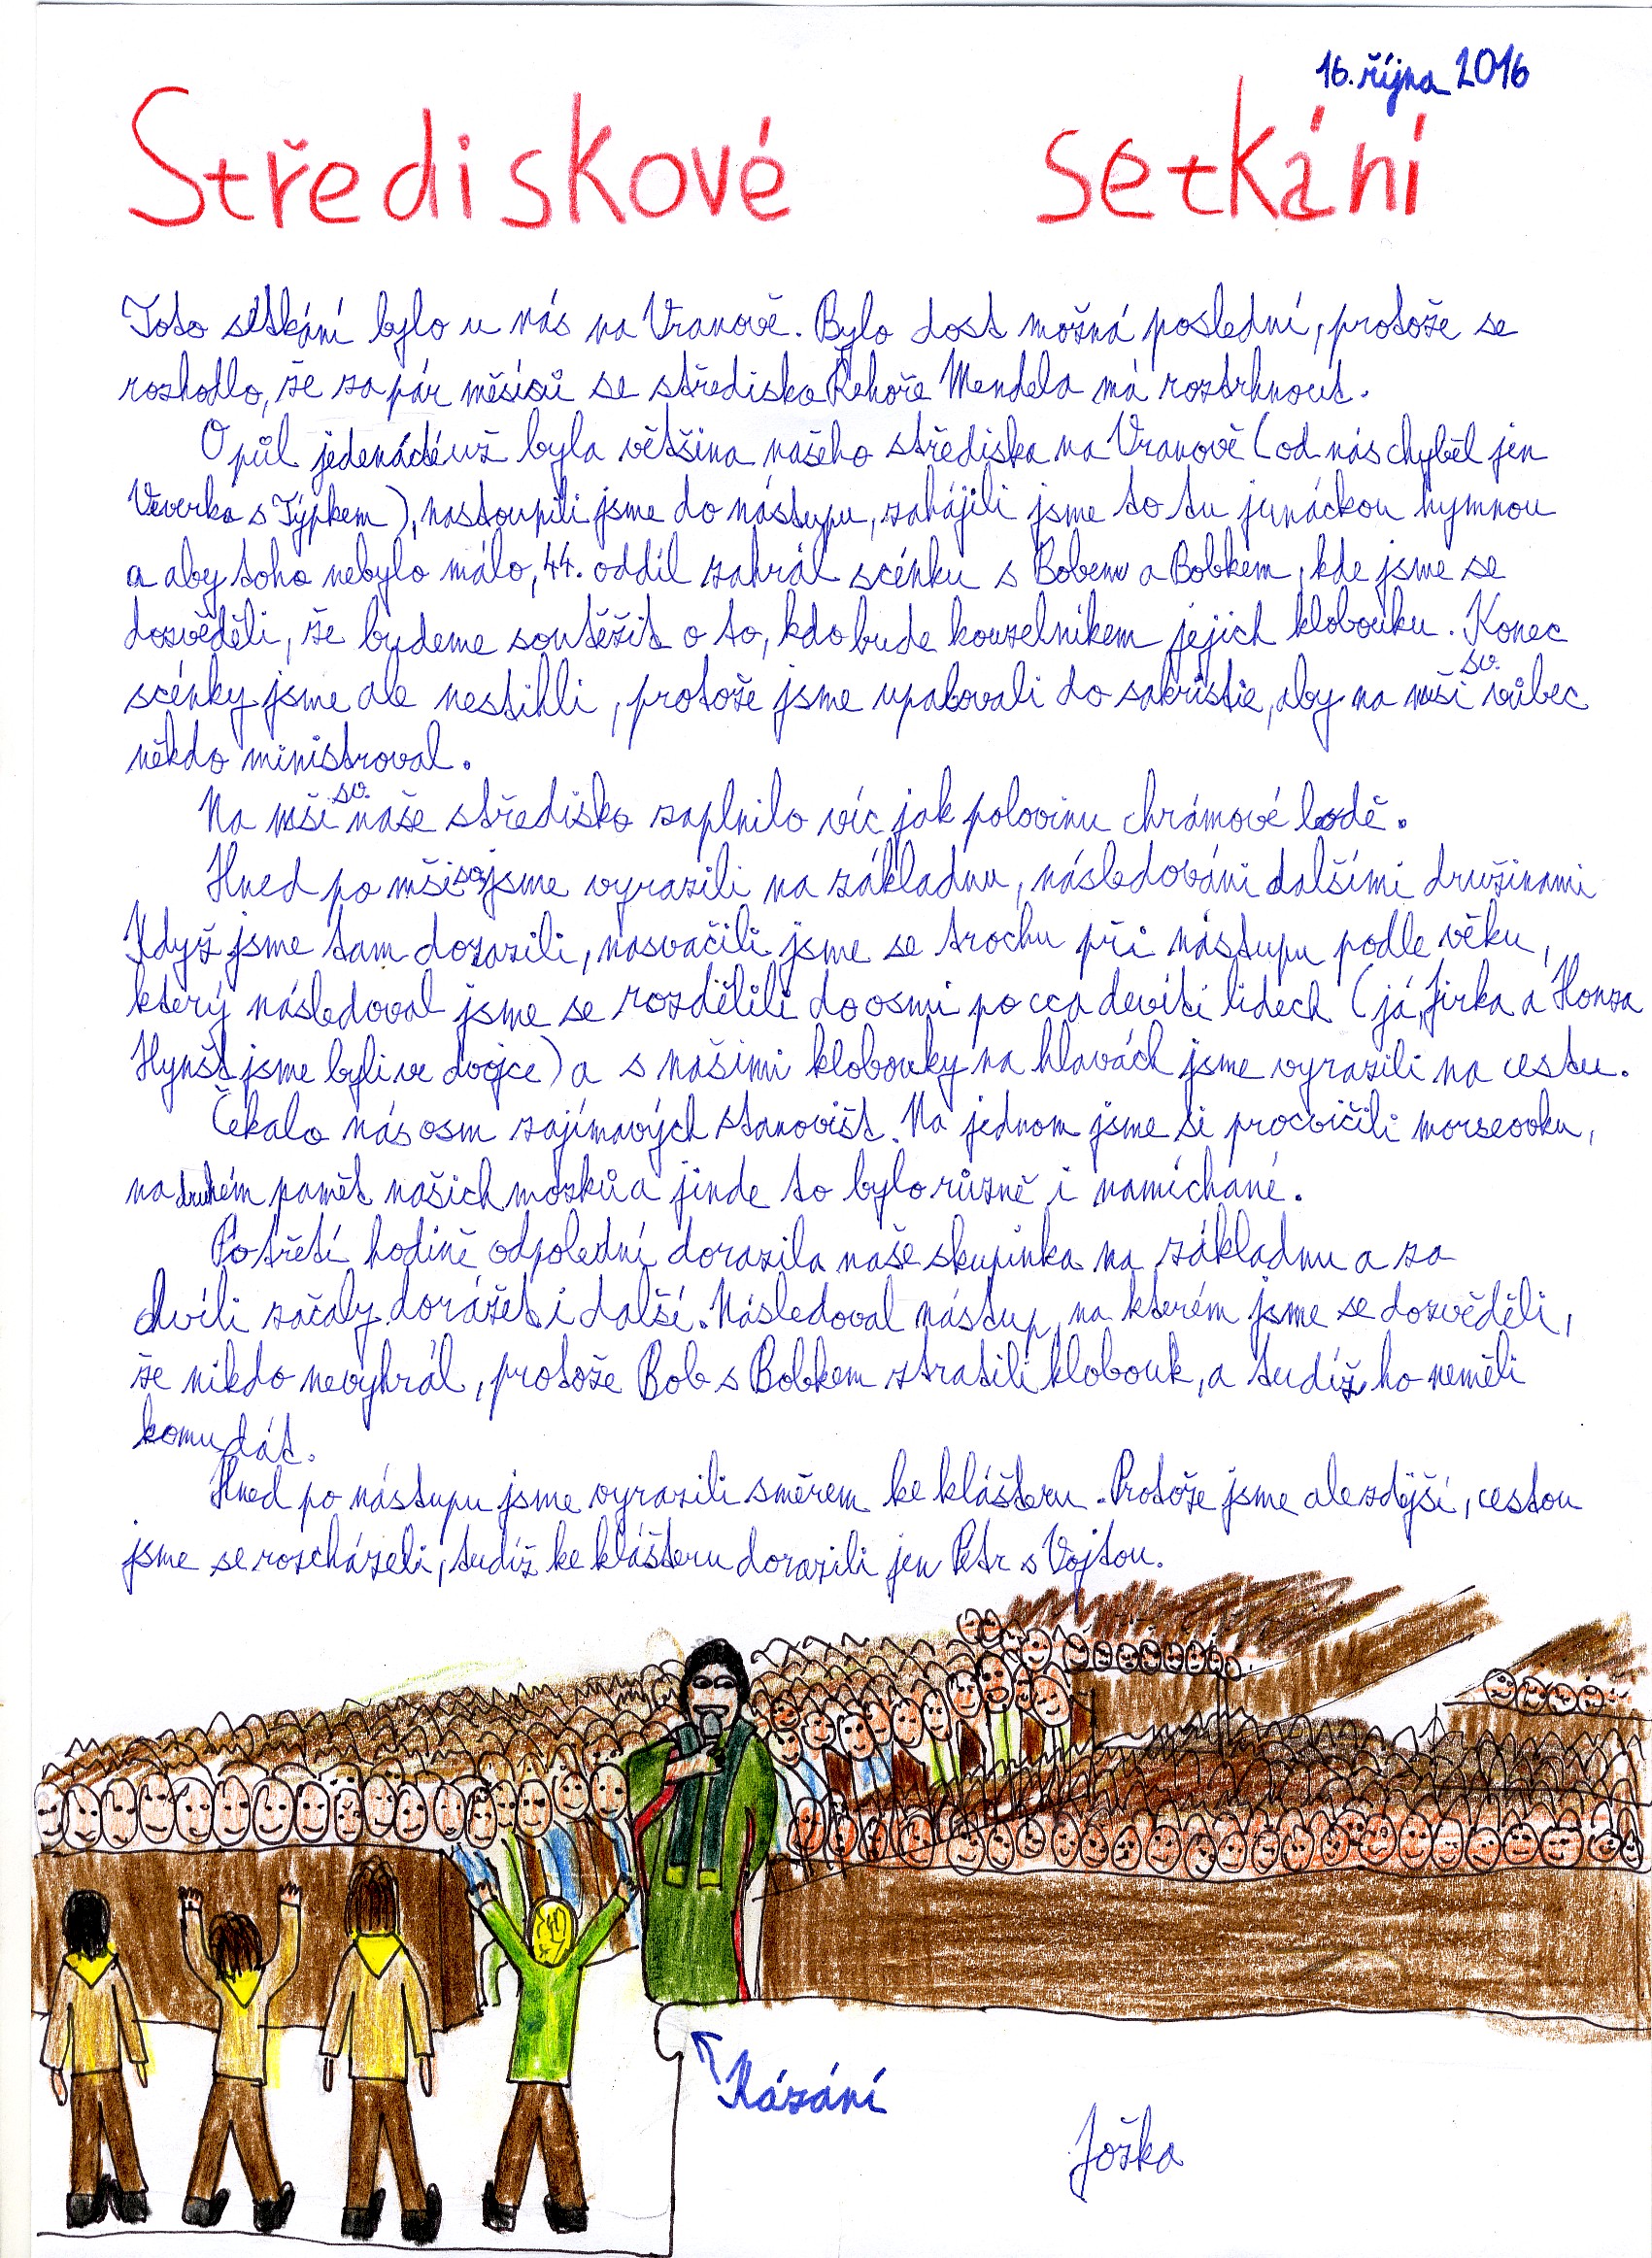 16. října 2016
Střediskové setkání
Toto setkání bylo u nás na Vranově. Bylo dost možná poslední, protože se
rozhodlo, že za pár měsíců se středisko Řehoře Mendela má roztrhnout.
O půl jedenácté už byla většina našeho střediska na Vranově (od nás chyběl jen
Veverka s Týpkem), nastoupili jsme do nástupu, zahájili jsme to tu junáckou hymnou
a aby toho nebylo málo, 44. oddíl zahrál scénku s Bobem a Bobkem, kde jsme se
dozvěděli, že budeme soutěžit o to, kdo bude kouzelníkem jejich klobouku. Konec
scénky jsme ale nestihli, protože jsme upalovali do sakristie, aby na mši sv. vůbec
někdo ministroval.
Na mši sv. naše středisko zaplnilo víc jak polovinu chrámové lodě.
Hned po mši sv. jsme vyrazili na základnu, následováni dalšími družinami
Když jsme tam dorazili, nasvačili jsme se trochu při nástupu podle věku,
který následoval jsme se rozdělili do osmi po cca devíti lidech (já, Jirka a Honza
Hynšt jsme byli ve dvojce) a s našimi klobouky na hlavách jsme vyrazili na cestu.
Čekalo nás osm zajímavých stanovišť. Na jednom jsme si procvičili morseovku,
na druhém paměť našich mozků a jinde to bylo různě i namíchané.
Po třetí hodině odpolední dorazila naše skupinka na základnu a za
chvíli začaly dorážet i další. Následoval nástup, na kterém jsme se dozvěděli,
že nikdo nevyhrál, protože Bob s Bobkem ztratili klobouk, a tudíž ho neměli
komu dát.
Hned po nástupu jsme vyrazili směrem ke klášteru. Protože jsme ale zdejší, cestou
jsme se rozcházeli, tudíž ke klášteru dorazili jen Petr s Vojtou.
Kázání
Jožka